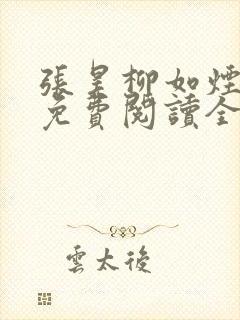 張昊柳如煙
免費閱讀全
雲太後